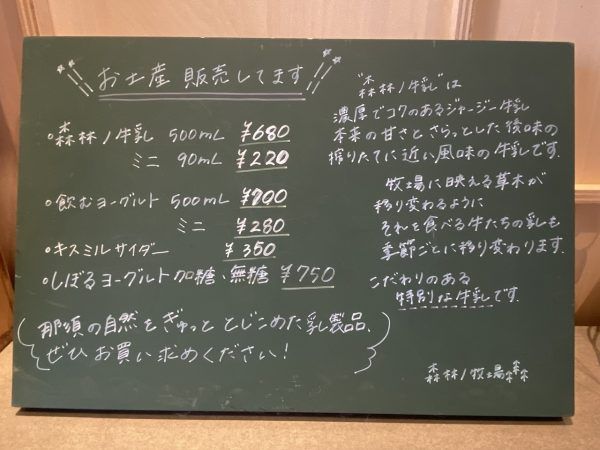 お土産 販売してます
・森林ノ牛乳 500mL ¥680
ミニ 90mL ¥220
・飲むヨーグルト 500mL ¥700
ミニ ¥280
・キスミルサイダー ¥350
・しぼるヨーグルト加糖、無糖 ¥750
那須の自然をぎゅっと とじこめた乳製品、
ぜひお買い求めください!
"森林ノ牛乳"は
濃厚でコクのあるジャージー牛乳
本来の甘さとさらっとした後味の
搾りたてに近い風味の牛乳です.
牧場に映える草木が
移り変わるように
それを食べる牛たちの乳も
季節ごとに移り変わります.
こだわりのある
特別な牛乳です.
森林ノ牧場